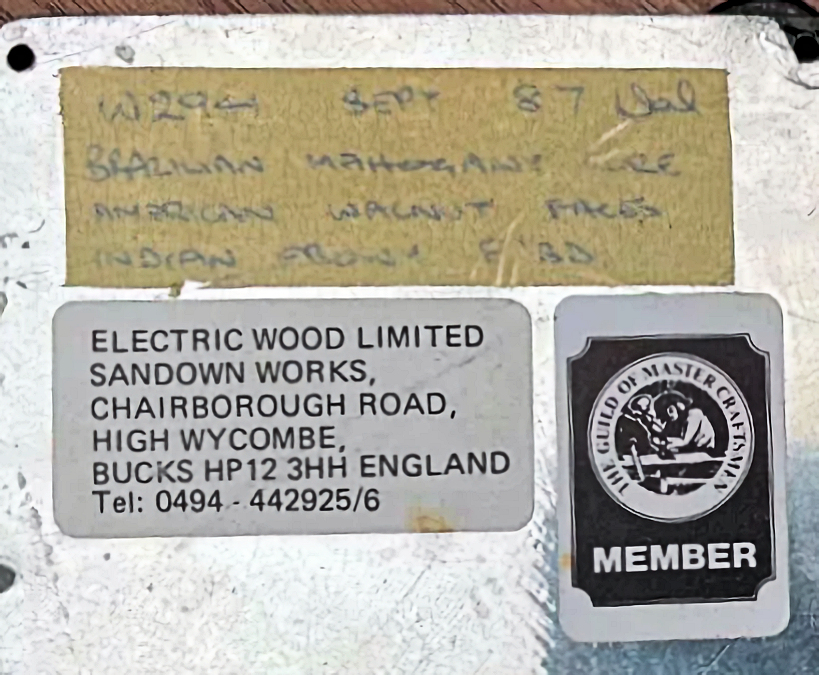 W294 SEPT 87
BRAZILIAN MAHOGANY CORE
AMERICAN WALNUT FACES
INDIAN EBONY F'BD
ELECTRIC WOOD LIMITED
SANDOWN WORKS,
CHAIRBOROUGH ROAD,
HIGH WYCOMBE,
BUCKS HP12 3HH ENGLAND
Tel: 0494 - 442925/6
THE GUILD OF MASTER CRAFTSMEN
MEMBER